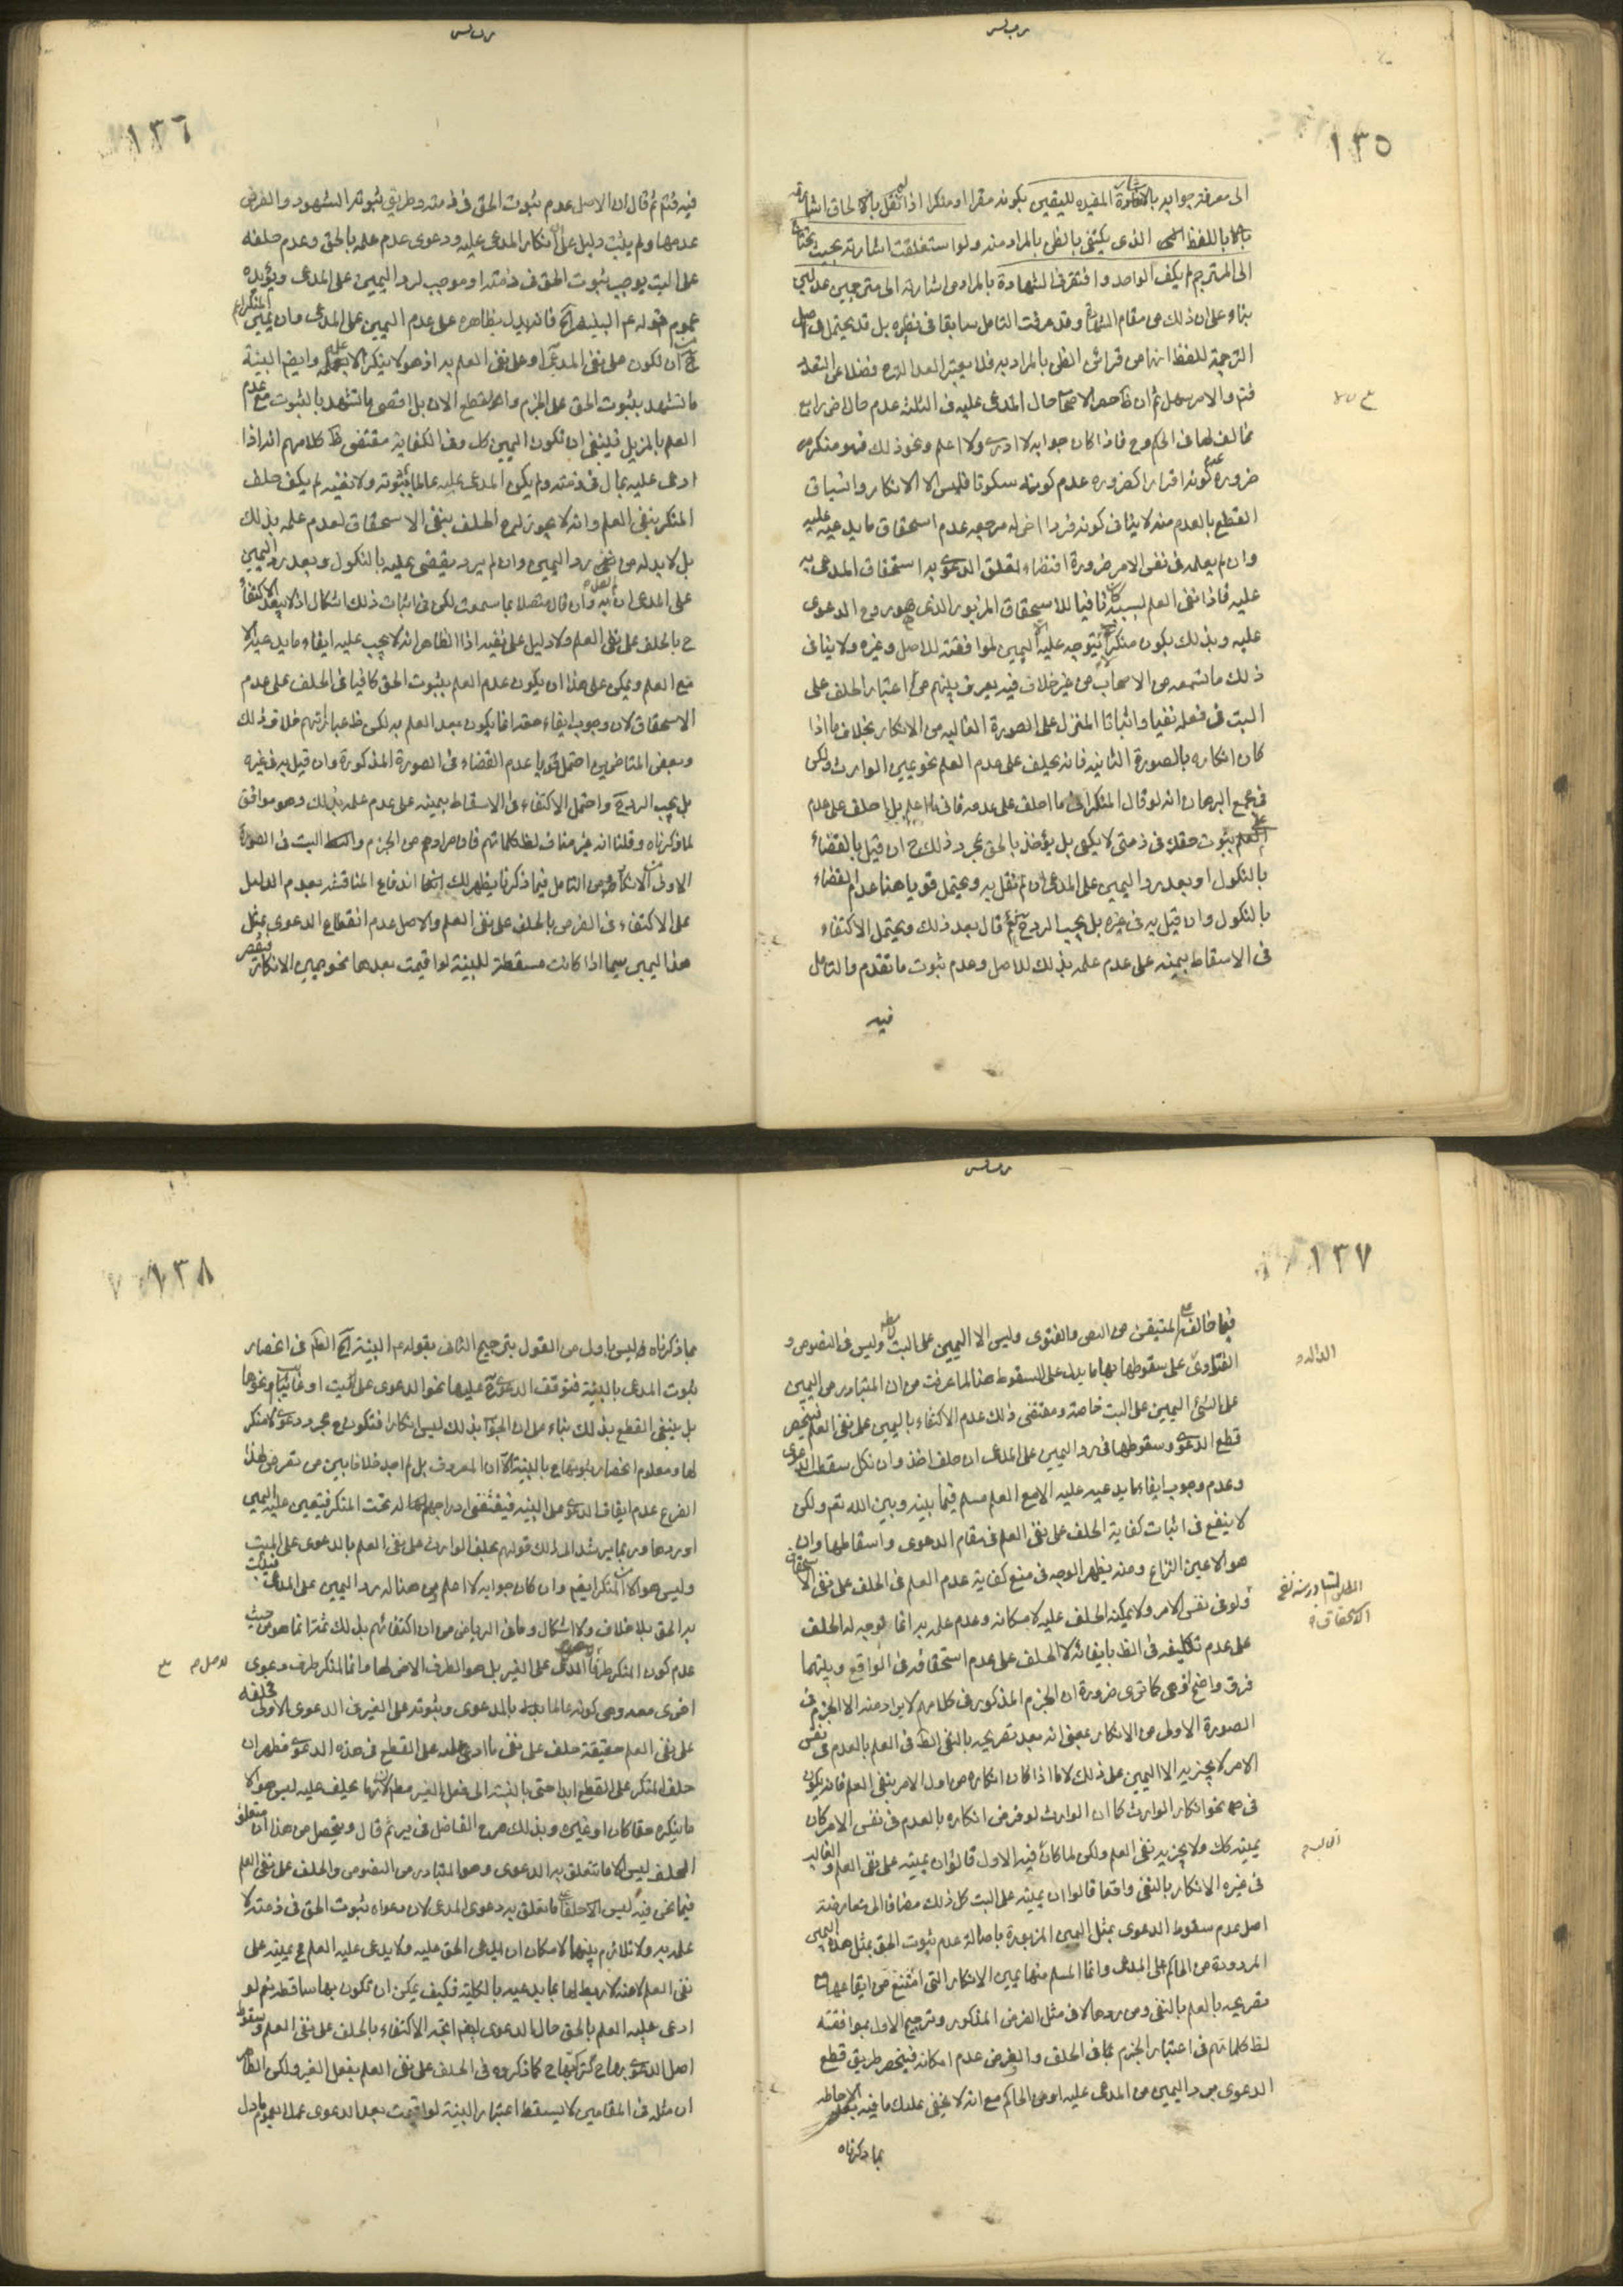 ١٣٥
الى معرفة جوابه بالاشارة المفيدة لليقين بكونه مقرا او منكرا اذا لم نقل بالالحاق اشارته
باللفظ الذى يكتفى بالظن بالمراد منه ولو استغلقت اشارته بحيث يحتاج
الى المترجم لم يكف الواحد وافتقر فى الشهادة بالمراد من اشارته الى مترجمين عدلين
بناء على ان ذلك من مقام الشهادة وقد عرفت التامل سابقا فى نظيره بل قد يحتمل فى اصل
الترجمة للفظ انها من قرائن الظن بالمراد به فلا يعتبر العدالة فضلا عن التعدد
فتم والامر سهل ثم ان ظ حصر الاصحاب حال المدعى عليه فى الثلثة عدم حال اخر رابع
مخالف لها فى الحكم وح فاذا كان جوابه لا ادرى ولا اعلم ونحو ذلك فهو منكر
ضرورة عدم كونه اقرارا كضرورة عدم كونه سكوتا فليس الا الانكار واشباق
القطع بالعدم منه لا ينافى كونه فردا اخر له مرجعه عدم استحقاق ما يدعيه عليه
وان لم يعلمه فى نفس الامر ضرورة اقتضاء تعلق الدعوى به استحقاق المدعى به
عليه فاذا نفى العلم بسببه كان نافيا للاستحقاق المزبور الذى هو روح الدعوى
عليه وبذلك يكون منكرا يتوجه عليه اليمين لموافقته للاصل وغيره ولا ينافى
ذلك ما تسمعه من الاصحاب من غير خلاف فيه يعرف بينهم من اعتبار الحلف على
البت فى فعله نفيا واثباتا المنزل على الصورة الغالبه من الانكار بخلاف ما اذا
كان انكاره بالصورة الثانيه فانه يحلف على عدم العلم نحو يمين الوارث ولكن
فى مجمع البرهان انه لو قال المنكر انى ما احلف على عدمه فانى ما اعلم بل احلف على عدم
العلم بثبوت حقك فى ذمتى لا يكفى بل يؤخذ بالحق بمجرد ذلك ح ان قيل بالقضاء
بالنكول او بعد رد اليمين على المدعى ان لم نقل به ويحتمل قويا هنا عدم القضاء
بالنكول وان قيل به فى غيره بل يجب الرد ح ثم قال بعد ذلك ويحتمل الاكتفاء
فى الاسقاط بيمينه على عدم علمه بذلك للاصل وعدم ثبوت ما تقدم والتامل
فيه
١٣٦
فيه فتم ثم قال ان الاصل عدم ثبوت الحق فى ذمته وطريق ثبوته الشهود والفرض
عدمها ولم يثبت دليل على ان انكار المدعى عليه ودعوى عدم علمه بالحق وعدم حلفه
على البت يوجب ثبوت الحق فى ذمته او موجب لرد اليمين على المدعى ويؤيده
عموم قوله عم البينة الخ فانه يدل بظاهره على عدم اليمين على المدعى وان يمين المنكر اعم
من ان تكون على نفى المدعى او على نفى العلم به اذ هو لا ينكر الا علمه وايضا البينة
ما تشهد بثبوت الحق على الجزم والقطع الان بل اقصى ما تشهد بالثبوت مع عدم
العلم بالمزيل فينبغى ان تكون اليمين كك وفى الكفاية مقتضى ظ كلامهم انه اذا
ادعى عليه بمال فى ذمته ولم يكن المدعى عليه عالما بثبوته ولا نفيه لم يكف حلف
المنكر بنفى العلم وانه لا يجوز له ح الحلف بنفى الاستحقاق لعدم علمه بذلك
بل لا بد له من رد اليمين وان لم يرد يقضى عليه بالنكول وبعد رد اليمين
على المدعى وان قال متصلا بما سمعت لكن فى اثبات ذلك اشكال اذ لا يبعد الاكتفاء
ح بالحلف على نفى العلم ولا دليل على نفيه اذ الظاهر انه لا يجب عليه ايفاء ما يدعيه الا
مع العلم ويمكن على هذا ان يكون عدم العلم بثبوت الحق كافيا فى الحلف على عدم
الاستحقاق لان وجوب ايفاء حقه انما يكون بعد العلم به لكن ظ عباراتهم خلاف ذلك
وبعض المتاخرين احتمل قويا عدم القضاء فى الصورة المذكورة وان قيل به فى غيره
بل يجب الرد ح واحتمل الاكتفاء فى الاسقاط بيمينه على عدم علمه بذلك وهو موافق
لما ذكرناه وقلنا انه غير مناف لظ كلماتهم فان مرادهم من الجزم والبت فى الصورة
الاولى من الانكار ومن التامل فيما ذكرنا يظهر لك ايضا اندفاع المناقشه بعدم الدليل
على الاكتفاء فى الفرض بالحلف على نفى العلم والاصل عدم انقطاع الدعوى بمثل
هذا اليمين سيما اذا كانت مسقطة للبينة لو اقيمت بعدها نحو يمين الانكار فيقتصر
١٣٧
فيما خالفه على المتيقن من النص والفتوى وليس الا اليمين على البت وليس فى النصوص و
الفتاوى على سقوطها بها ما يدل على السقوط هنا لما عرفت من ان المتبادر من اليمين
على الشئ اليمين على البت خاصة ومقتضى ذلك عدم الاكتفاء باليمين على نفى العلم فينحصر
قطع الدعوى وسقوطها فى رد اليمين على المدعى ان حلف اخذ وان نكل سقطت الدعوى
وعدم وجوب ايفاء ما يدعيه عليه الا مع العلم مسلم فيما بينه وبين الله تعم ولكن
لا ينفع فى اثبات كفاية الحلف على نفى العلم فى مقام الدعوى واسقاطها وان
هو الا عين النزاع ومنه يظهر الوجه فى منع كفاية عدم العلم فى الحلف على نفى الاستحقاق
ولو فى نفس الامر ولا يمكنه الحلف عليه لامكانه وعدم علمه به انما توجه له الحلف
على عدم تكليفه فى الظ بايفائه لا الحلف على عدم استحقاقه فى الواقع وبينهما
فرق واضح وهى كما ترى ضرورة ان الجزم المذكور فى كلامهم لا يراد منه الا الجزم فى
الصورة الاولى من الانكار بمعنى انه بعد تصريحه بالنفى الظ فى العلم بالعدم فى نفس
الامر لا يجزيه الا اليمين على ذلك لا ما اذا كان انكاره من اول الامر بنفى العلم فانه يكون
فى نحو انكار الوارث كما ان الوارث لو فرض انكاره بالعدم فى نفس الامر كان
يمينه كك ولا يجزيه نفى العلم ولكن لما كان فيه الاول قالوا ان يمينه على نفى العلم والغالب
فى غيره الانكار بالنفى واقعا قالوا ان يمينه على البت كل ذلك مضافا الى معارضة
اصل عدم سقوط الدعوى بمثل اليمين المزبورة باصالة عدم ثبوت الحق بمثل هذه اليمين
المردودة من الحاكم على المدعى وانما المسلم منها يمين الانكار التى امتنع من ايقاعها مع
تصريحه بالعلم بالنفى ومن ردها لا فى مثل الفرض المذكور وترجيح الاول بموافقته
لظ كلماتهم فى اعتبار الجزم بما فى الحلف والفرض عدم امكانه فينحصر طريق قطع
الدعوى برد اليمين من المدعى عليه او من الحاكم مع انه لا يخفى عليك ما فيه بعد الاحاطه
بما ذكرناه
١٣٨
بما ذكرناه ليس باولى من القول بترجيح الثانى بقوله عم البينة الخ الظ فى انحصار
ثبوت المدعى بالبينة فتوقف الدعوى عليها نحو الدعوى على الميت او غائبا ونحوها
بل ينبغى القطع بذلك بناء على ان الجواب بذلك ليس انكارا فتكون ح مجرد دعوى لا منكر
لها ومعلوم انحصار ثبوتها ح بالبينة الا ان المعروف بل لم اجد خلافا بين من تعرض لهذا
الفرع عدم ايقاف الدعوى على البينه فيقتضى ادراجهم له تحت المنكر فيتعين عليه اليمين
او ردها وربما يرشد الى ذلك قولهم بحلف الوارث على نفى العلم بالدعوى على الميت
وليس هو الا المنكر ايضا وان كان جوابه لا اعلم هنا له رد اليمين على المدعى فيثبت
به الحق بلا خلاف ولا اشكال وما فى الرياض من ان اكتفائهم بذلك ثمة انما هو من حيث
عدم كون المنكر طرف الدعوى على الغير بل هو الطرف الاخر لها وانما المنكر طرف دعوى
اخرى معه وهى كونه عالما بالدعوى وثبوته على الغير فى الدعوى الاولى فحلفه
على نفى العلم حقيقة حلف على نفى ما ادعى عليه على القطع فى هذه الدعوى فظهر ان
حلف المنكر على القطع ابدا حتى بالنسبة الى فعل الغير مطلقا لان ما يحلف عليه ليس هو الا
ما ينكره حقا كان او غيره وبذلك صرح الفاضل فى ير ثم قال ويتحصل من هذا ان متعلق
الحلف ليس الا ما تتعلق به الدعوى وهو المتبادر من النصوص والحلف على نفى العلم
فيما نحن فيه ليس الا حلفا على ما تعلق به دعوى المدعى لان دعواه ثبوت الحق فى ذمته لا
علمه به ولا تلازم بينهما لامكان ان يدعى الحق عليه ولا يدعى عليه العلم ح يمينه على
نفى العلم لا عنه لا ربط لها بما يدعيه بالكلية فكيف يمكن ان تكون بها ساقطه نعم لو
ادعى عليه العلم بالحق حال الدعوى ايضا اتجه الاكتفاء بالحلف على نفى العلم وسقوط
اصل الدعوى بها ح كما ذكروه فى الحلف على نفى العلم بفعل الغير ولكن الظاهر
ان مثله فى المقامين لا يسقط اعتبار البينة لو اقيمت بعد الدعوى عملا بعموم ما دل